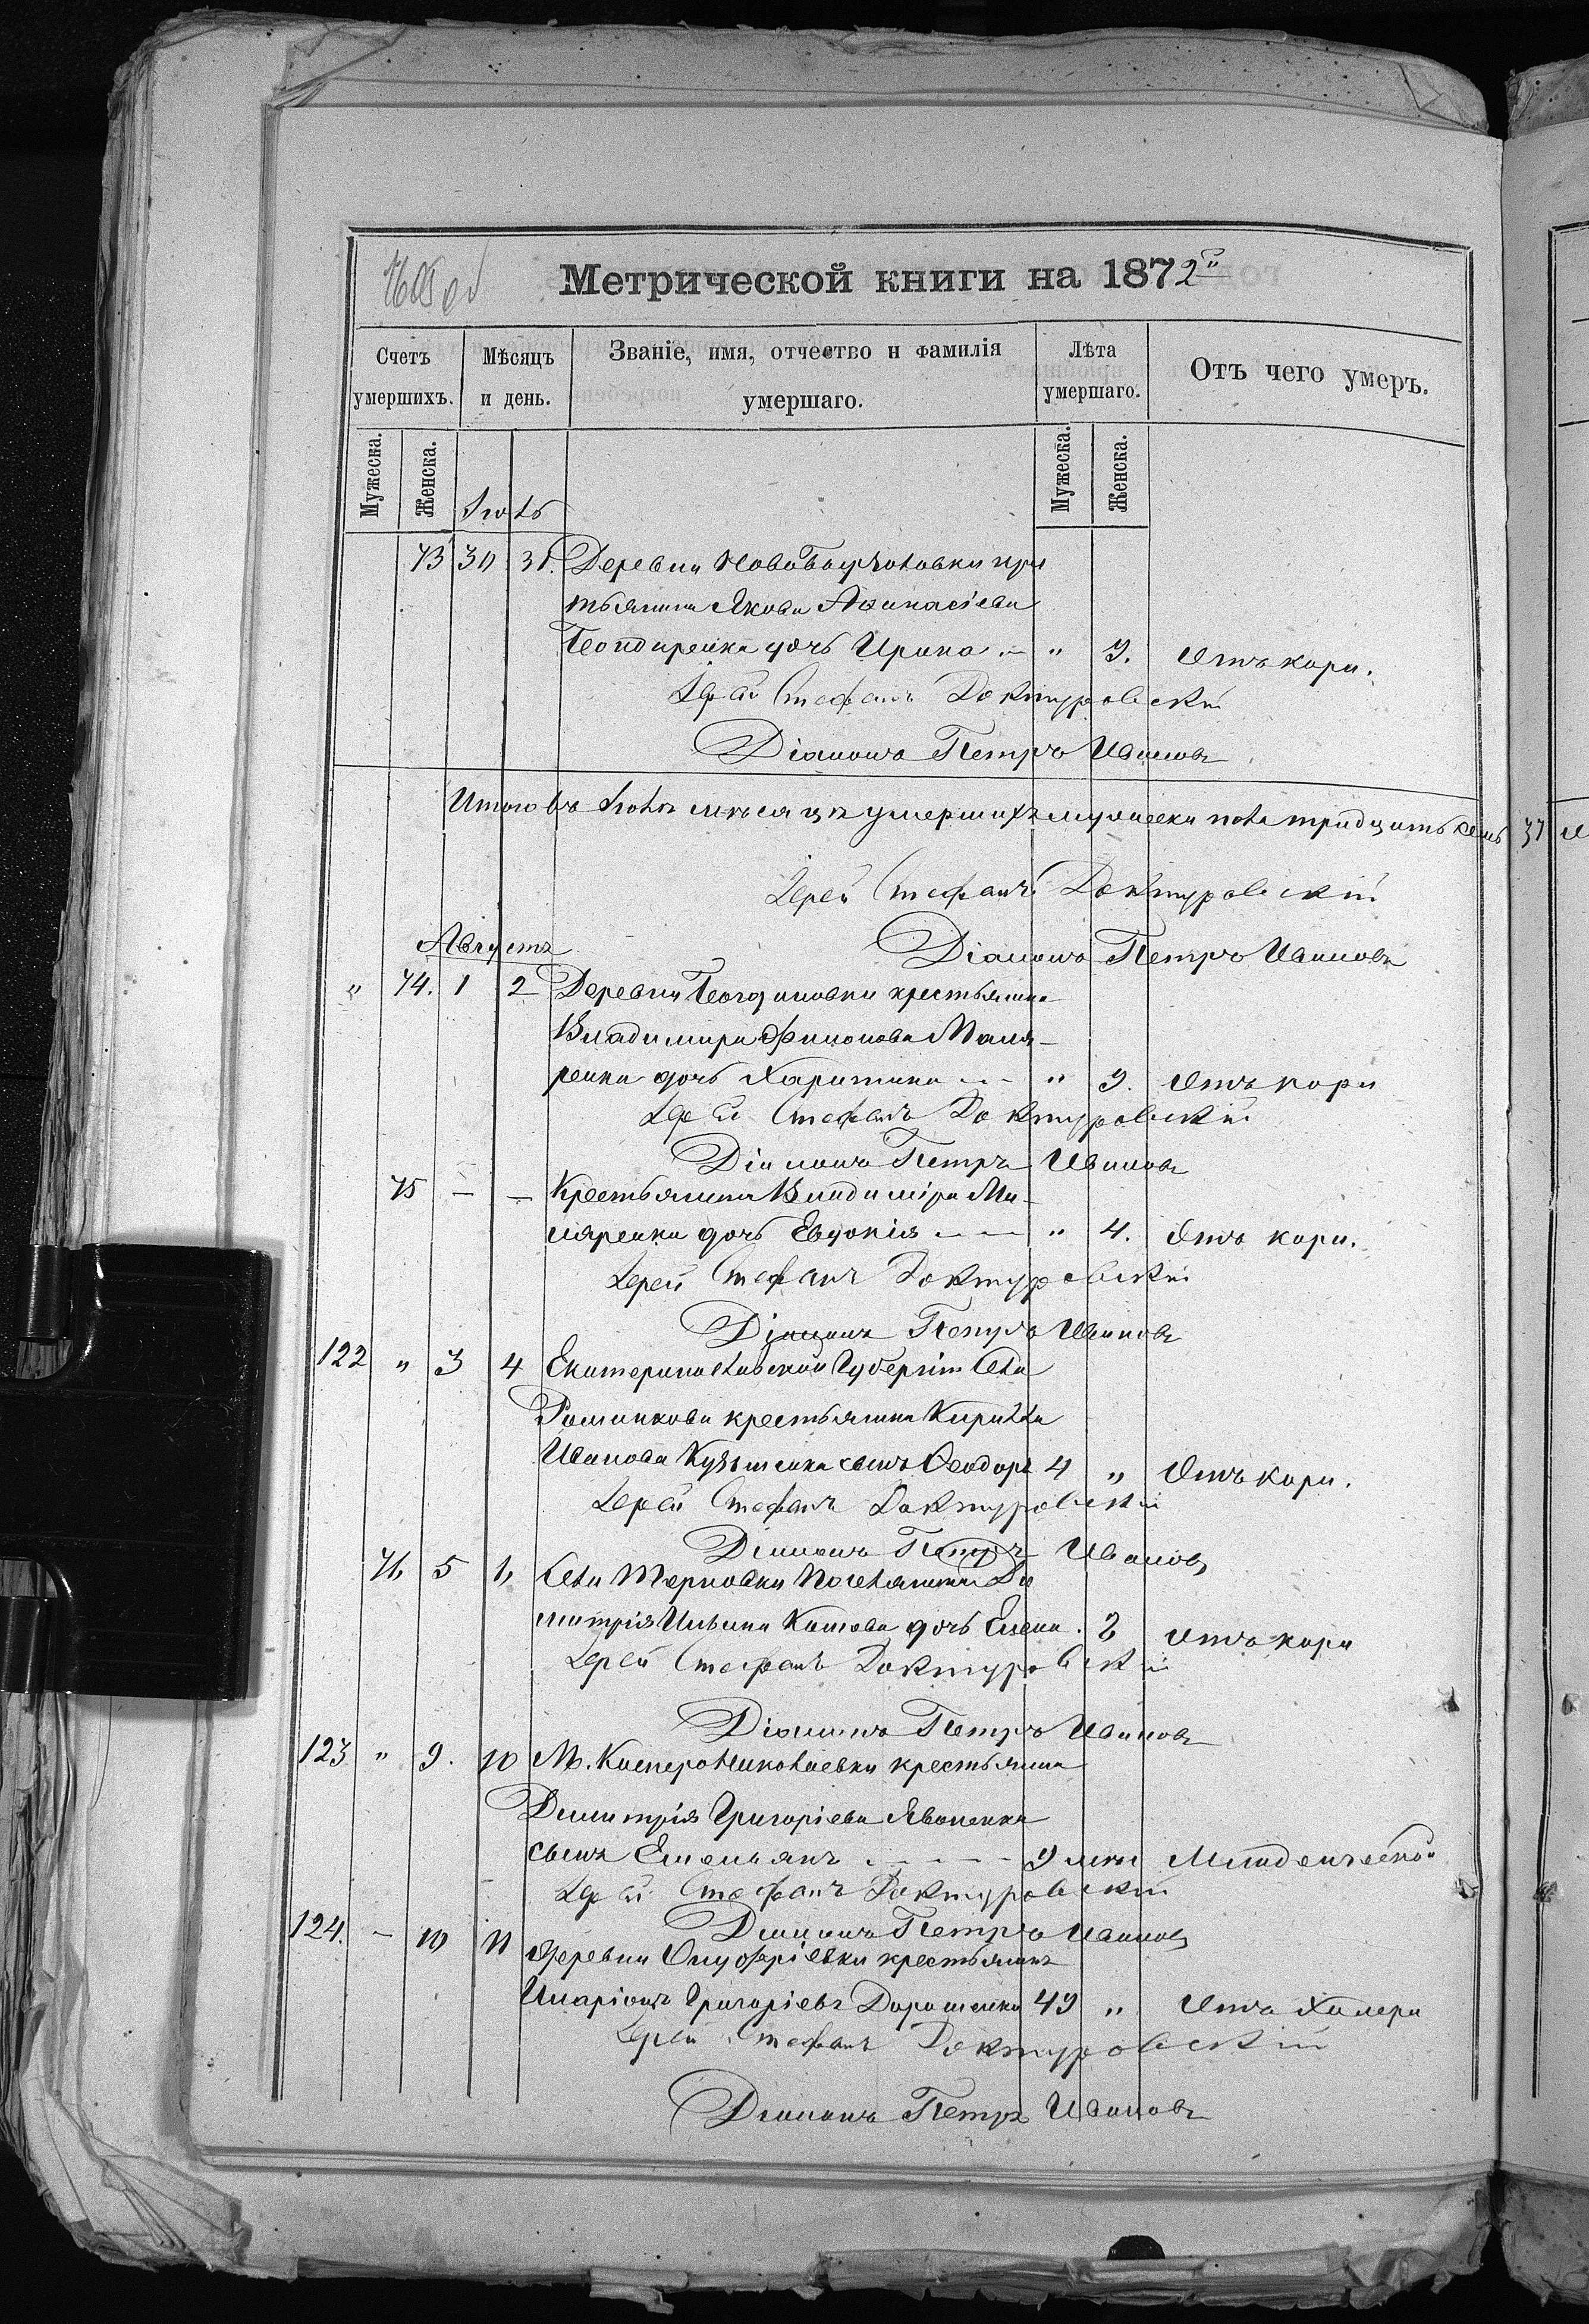 Метрической книги на 1872й
Счетъ умершихъ.
Мѣсяцъ и день.
Званіе, имя, отчество и фамилія умершаго.
Лѣта умершаго.
Отъ чего умеръ.
Мужеска. Женска.
Мужеска. Женска.
Іюль
73 30 31. Деревни
тьянина Якова Аѳанасіева
дочь Ирина. — " 3. Отъ кори.
Іерей Стефанъ Доктуровскій
Діаконъ Петръ Ивановъ
Итого въ Іюлѣ мѣсяцѣ умершихъ мужеска пола тридцать семь 37
Іерей Стефанъ Доктуровскій
Діаконъ Петръ Ивановъ
Августъ
" 74. 1 2 Деревни крестьянина
Владимира Филонова Маля-
ренка дочь Харитина — — " 9. Отъ кори
Іерей Стефанъ Доктуровскій
Діаконъ Петръ Ивановъ
75 — — Крестьянина Владиміра Ма-
ляренка дочь Евдокія — — " 4. Отъ кори.
Іерей Стефанъ Доктуровскій
Діаконъ Петръ Ивановъ
122 " 3 4 Екатеринославской Губерніи Села
крестьянина Кирилла
Иванова сынъ Ѳеодоръ 4 " Отъ кори.
Іерей Стефанъ Доктуровскій
Діаконъ Петръ Ивановъ
76 5 6 Села Терновки Поселянина Ди
митрія Ильина дочь Елена. 2 Отъ кори
Іерей Стефанъ Доктуровскій
Діаконъ Петръ Ивановъ
123 " 9. 10 М. Касперо Николаевки крестьянина
Димитрія Григоріева Явоненка
сынъ Емельянъ — — — — 9 мѣс Младенческой
Іерей Стефанъ Доктуровскій
Діаконъ Петръ Ивановъ
124. — 10 11 Деревни Онуфріевки крестьянинъ
Иларіонъ Григоріевъ Дорошенко 49 " Отъ холеры
Іерей Стефанъ Доктуровскій
Діаконъ Петръ Ивановъ